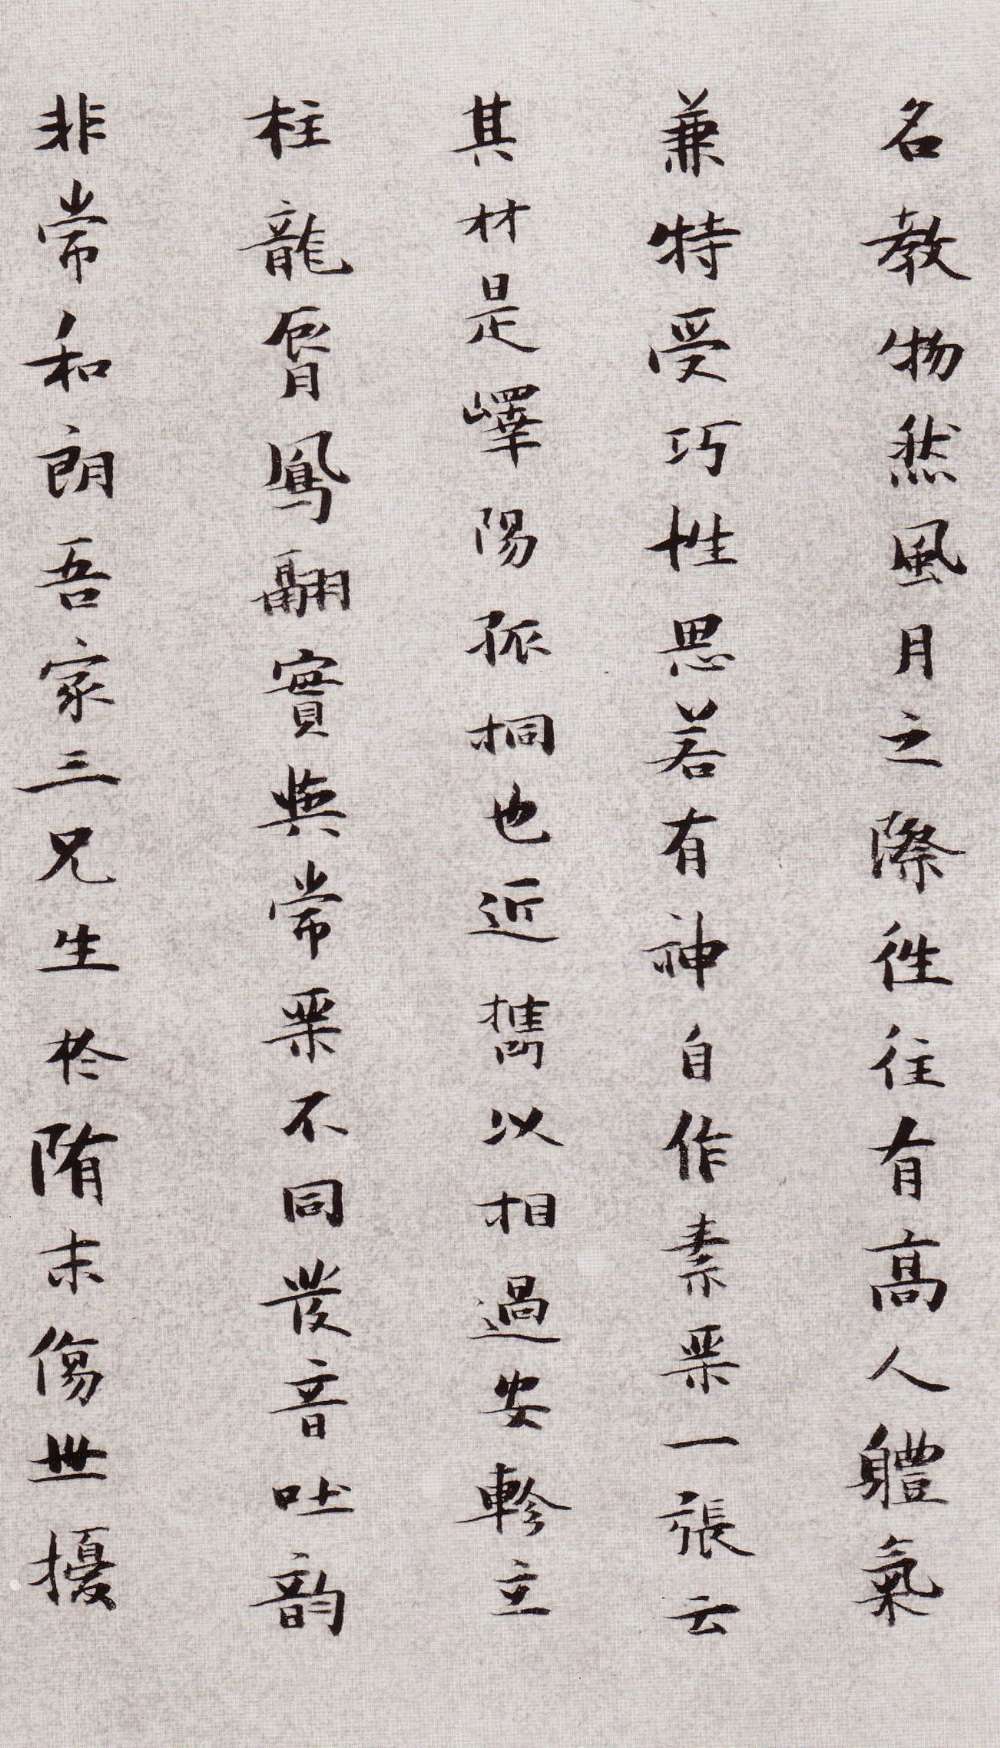 名教物然風月之際往往有高人體氣
兼特受巧性思若有神自作素琴一張云
其材是嶧陽孤桐也近攜以相過安軫立
柱龍脣鳳翮實與常琴不同發音吐韵
非常和朗吾家三兄生於隋末傷世擾